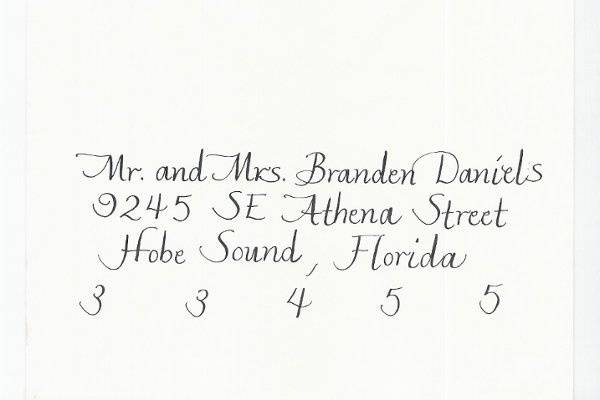 Mr. and Mrs. Branden Daniels
9245 SE Athena Street
Hobe Sound, Florida
3 3 4 5 5